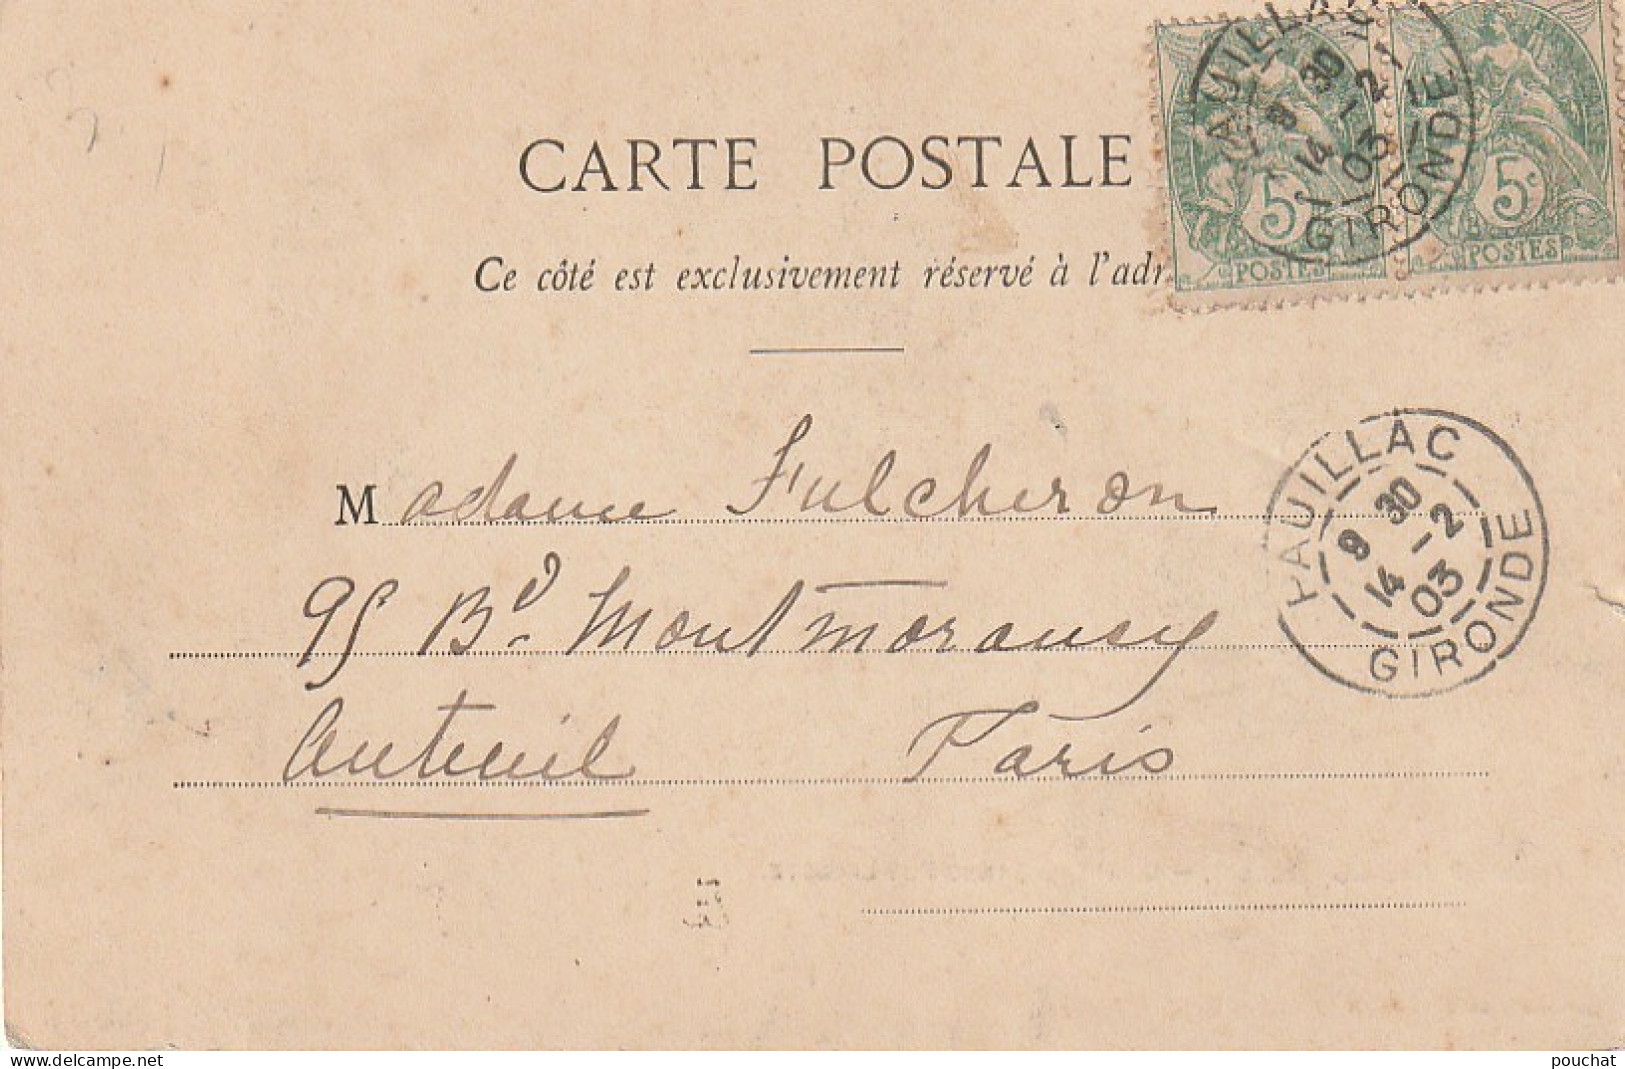 CARTE POSTALE
Ce côté est exclusivement réservé à l'adr
5c 5c
POSTES POSTES
PAUILLAC
9 30
14 -2
03
GIRONDE
Madame Fulcheron
95 Bd. Montmorency
Auteuil Paris
PAUILLAC
9 30
14 -2
03
GIRONDE
www.delcampe.net
pouchat